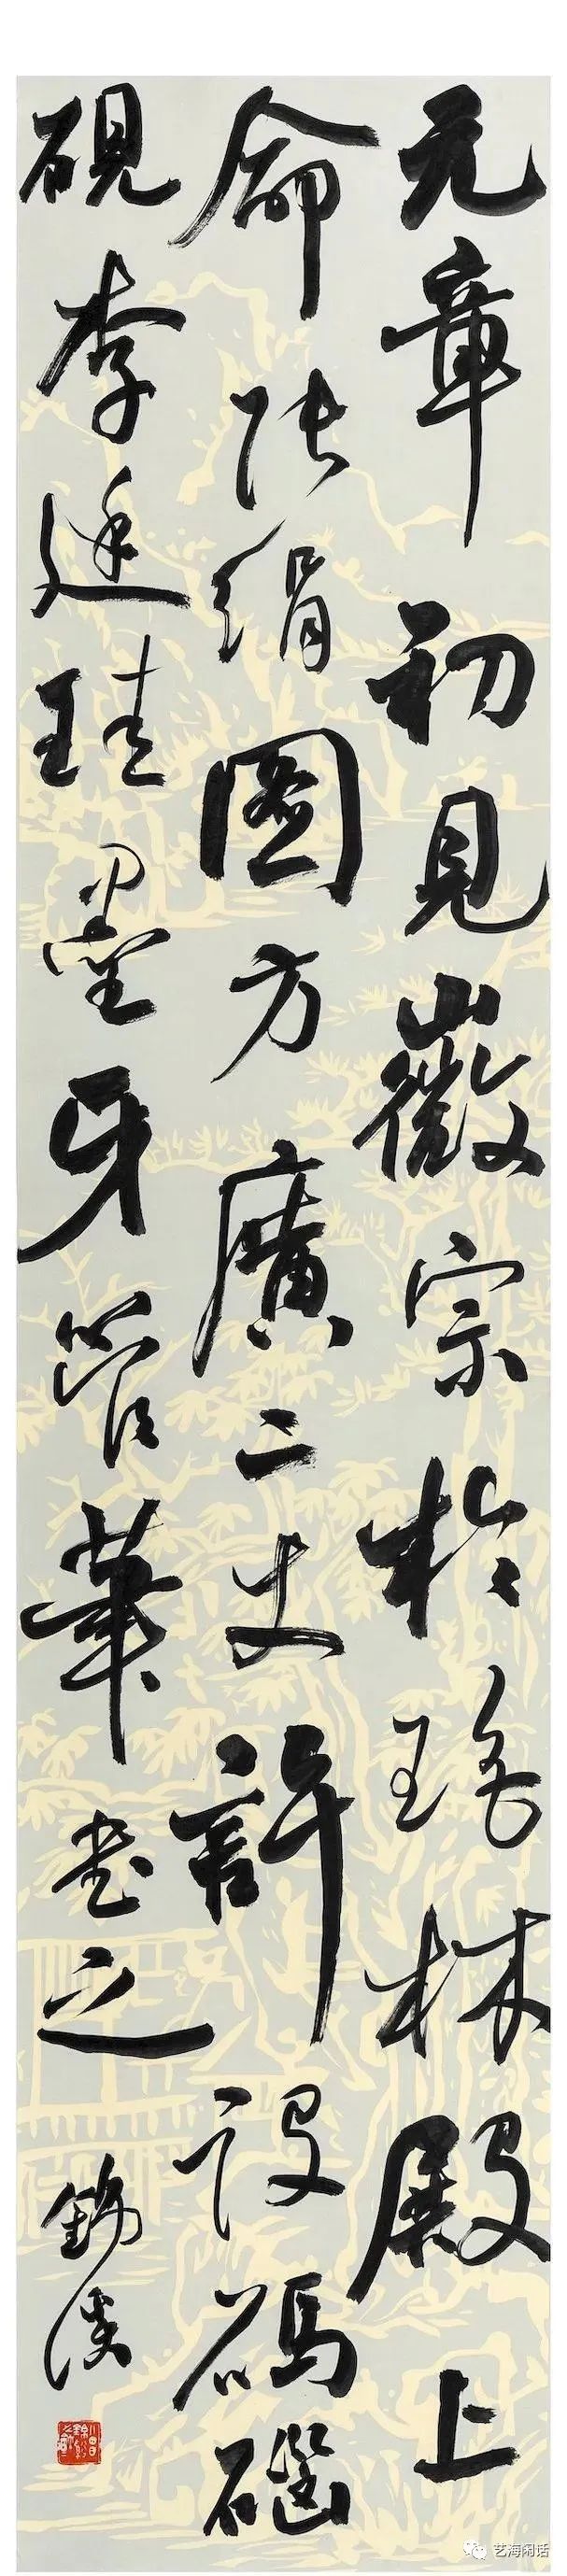 元章初見徽宗於瑤林殿上
命張絹圖方廣二丈許設碼碯
硯李廷珪墨牙管筆書之
錦
艺海闲话